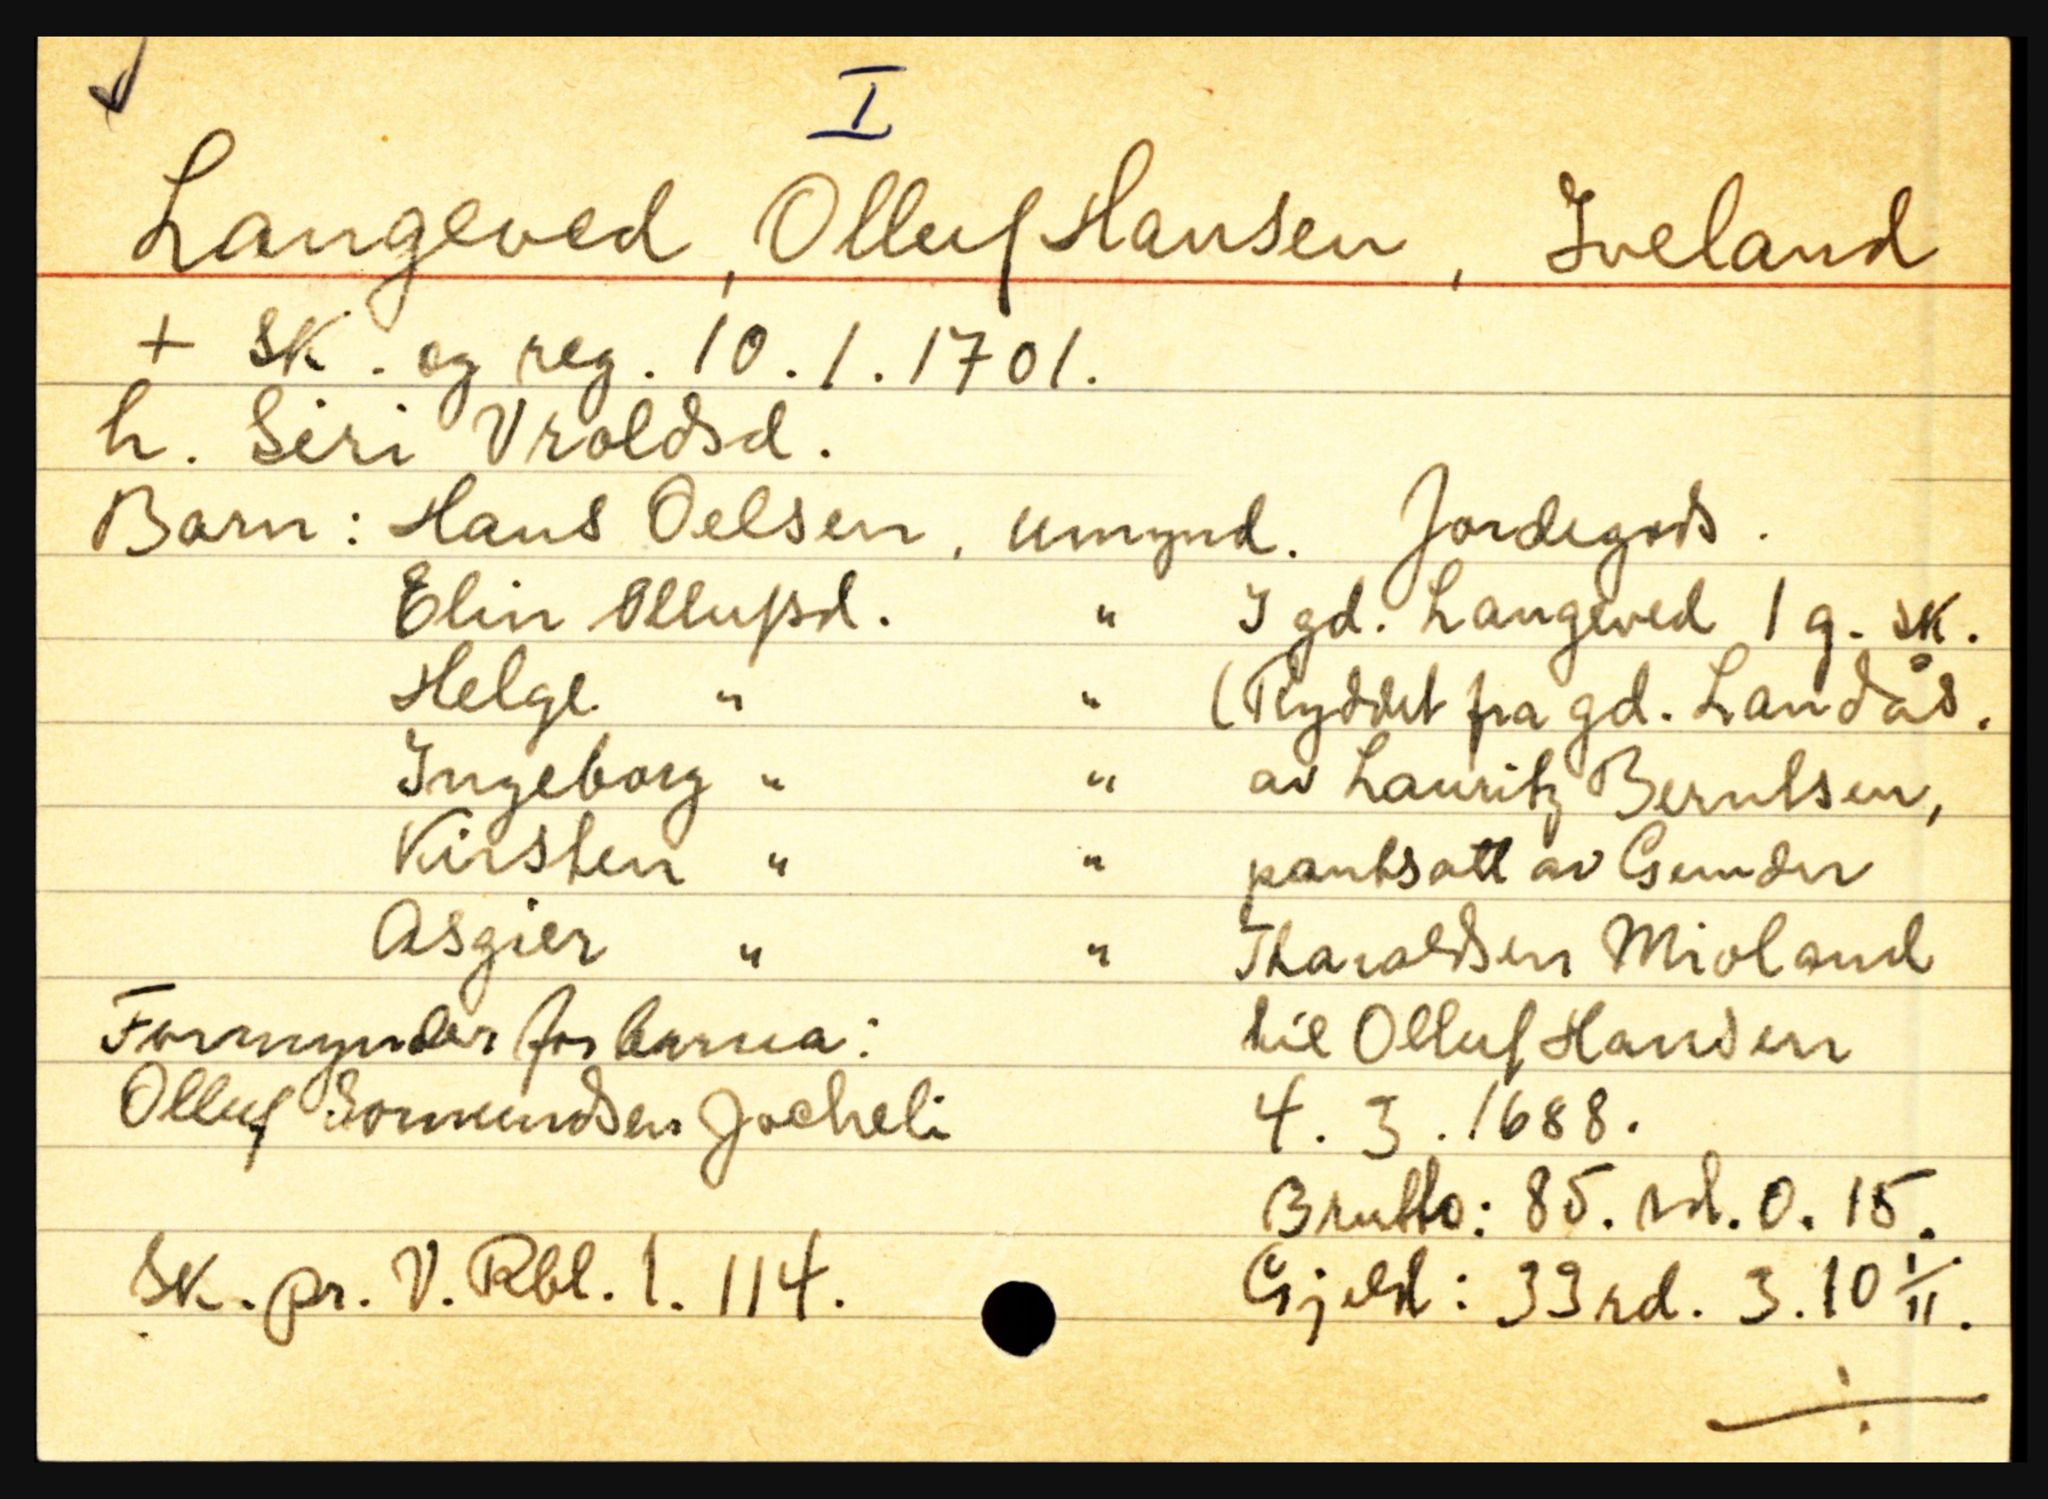 I
Langeved, Olluf Hansen, Iveland
+ SK. og reg. 10.1.1701.
h. Siri Vroldsd.
Barn: Hans Oelsen, umynd.
Elin Ollufsd. "
Helge " "
Ingeborg " "
Kirsten " "
Asgier " "
Formynder for barna:
Olluf Gormundsen Jocheli
Sk. pr. V. Rbl. 1. 114.
Jordegods.
I gd. Langeved 1 g. sk.
(Ryddet fra gd. Landås.
av Lauritz Berntsen,
pantsatt av Gunder
Tharaldsen Mioland
til Olluf Hansen
4. 3. 1688.
Brutto: 85. rd. 0. 15.
Gjeld: 33 rd. 3. 10 1/11.
÷